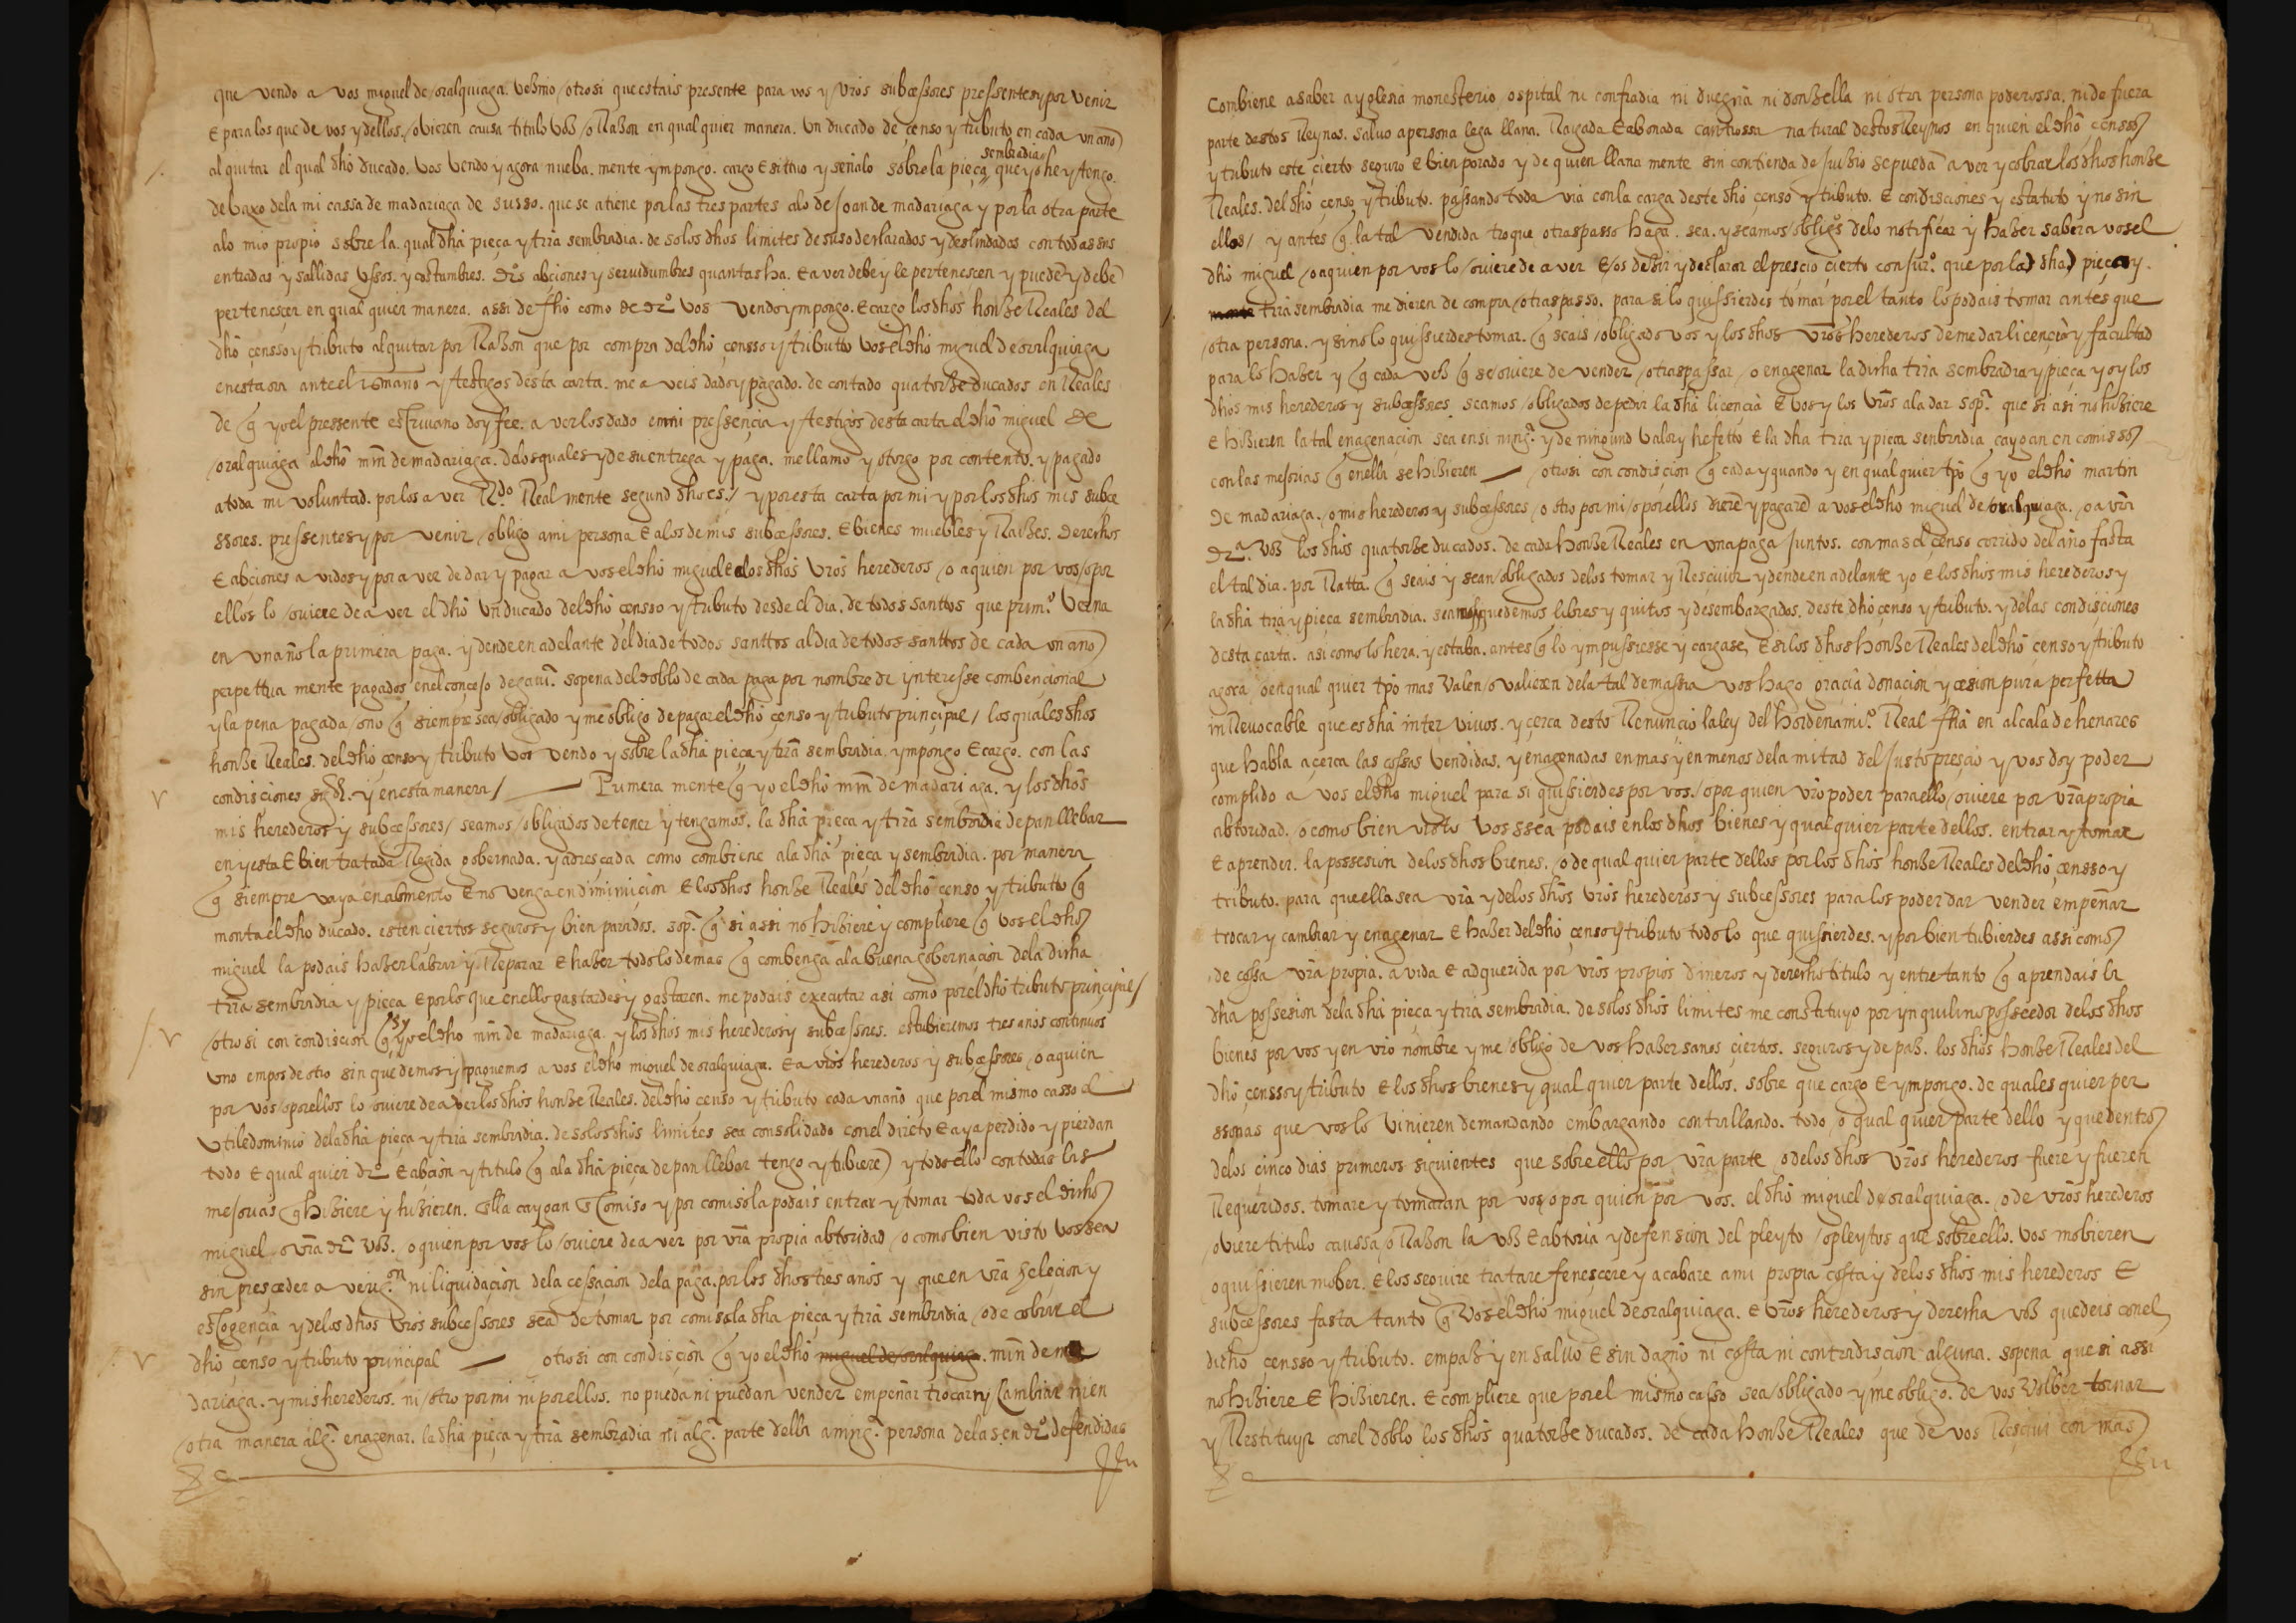 que vendo a vos miguel de / oralquiaga. vezino / otrosi que estais presente para vos y vros subcessores pressentes y por venir
E para los que de vos y dellos. / ovieren causa titulo voz / o Razon en qual quier manera. Un ducado de çenso y tributo en cada un año
al quitar el qual dho ducado. Vos vendo y agora nueba. mente ympongo. cargo E sitúo y señalo sobre la pieça sembradia que yo he y tengo.
debaxo dela mi cassa de madariaga de susso. que se atiene por las tres partes alo de Joan de madariaga y por la otra parte
alo mio propio sobre la. qual dha pieça y trra sembradia. de so los dhos limites desuso declarados y deslindados con todas sus
entradas y sallidas Ussos. y costumbres. dros abçiones y seruidumbres quantas ha. E a ver debe y le pertenesçen y puede y debe
pertenesçer en qual quier manera. assi de fho como de dro vos vendo ympongo. E cargo los dhos honze Reales del
dho çensso y tributo al quitar por Razon que por compra del dho çensso y tributto vos el dho miguel de oralquiaga
en esta ora ante el esno y testigos desta carta. me a veis dado y pagado. de contado quatorze ducados en Reales
de q yo el pressente escriuano doy fee. a ver los dado en mi pressençia y testigos desta carta el dho miguel de
/ oralquiaga al dho mrn de madariaga. delos quales y de su entrega y paga. me llamo y otorgo por contento. y pagado
a toda mi voluntad. por los a ver Rdo. Real mente segund dho es. / y por esta carta por mi y por los dhos mis subçe
ssores. pressentes y por venir / obligo a mi persona E alos de mis subcessores. E bienes muebles y Raizes. derechos
E abçiones a vidos y por a ver de dar y pagar a vos el dho miguel E alos dhos vros herederos / o a quien por vos / o por
ellos lo / oviere de a ver el dho un ducado del dho çensso y tributo desde el dia. de todos santtos que primo. Verna
en un año la primera paga. y dende en adelante del dia de todos santtos al dia de todos santtos de cada un año
perpettua mente pagados en el conçejo de gaui. so pena del doblo de cada paga por nombre de ynteresse combençional
y la pena pagada / o no q siempre sea / obligado y me obligo de pagar el dho çenso y tributo prinçipal / los quales dhos
honze Reales. del dho çenso y tributo vos vendo y sobre la dha pieça y trra sembradia. ympongo E cargo. con las
condisciones sigtes. y en esta manera / — Primera mente q yo el dho mrn de madariaga. y los dhos
mis herederos y subcessores / seamos / obligados de tener y tengamos. la dha pieça y trra sembradia de pan llebar
en y esta E bien tratada Regida gobernada. y adresçada como combiene ala dha pieça y sembradia. por manera
q siempre vaya en abmento E no venga en diminuiçion E los dhos honze Reales del dho çenso y tributto q
monta el dho ducado. esten çiertos seguros y bien parados. sopa. q si assi no hiziere y compliere q vos el dho
miguel la podais hazer labrar y Reparar E hazer todo lo demas q combenga ala buena gobernaçion dela dicha
trra sembradia y pieça E por lo que en ello gastardes y gastaren. me podais executar asi como por el dho tributo prinçipal /
/ otro si con condiscion q si yo el dho mrn de madariaga. y los dhos mis herederos y subcessores. estubieremos tres años continuos
uno empos de otro sin que demos y paguemos a vos el dho miguel de oralquiaga. E a vros herederos y subcessores / o a quien
por vos / o por ellos lo oviere de a ver los dhos honze Reales. del dho çenso y tributo cada un año que por el mismo casso el
Utile dominio dela dha pieça y trra sembradia. de so los dhos limites sea consolidado con el direto E aya perdido y pierdan
todo E qual quier dro E abçion y titulo q ala dha pieça de pan llebar tengo y tubiere y todo ello con todas las
mejorias q hiziere y hizieren. En ella caygan E comiso y por comiso la podais entrar y tomar toda vos el dicho
miguel o vra dra voz. o quien por vos lo / oviere de a ver por vra propia abtoridad / o como bien visto vos sea
sin presçeder a verigon ni liquidaçion dela cessaçion dela paga. por los dhos tres años y que en vra helecion y
escogençia y delos dhos vros subcessores sea de tomar por comiso la dha pieça y trra sembradia / o de cobrar el
dho çenso y tributo principal — otrosi con condisçion q yo el dho miguel de oralquiaga. mrn de ma
dariaga. y mis herederos. ni / otro por mi ni por ellos. no pueda ni puedan vender empeñar trocar ny Cambiar ni en
/ otra manera alga. enagenar. la dha pieça y trra sembradia ni alga. parte della a ninga. persona delas en dro defendidas
Combiene a saber a yglesia monesterio ospital ni confradia ni duegña ni donzella ni otra persona poderossa. ni de fuera
parte destos Reynos. salvo a persona lega llana. Raigada E abonada cantiossa natural destos Reynos en quien el dho çensso
y tributo este çierto seguro E bien parado y de quien llana mente sin contienda de Juizio se pueda a ver y cobrar los dhos honze
Reales. del dho çenso y tributo. passando toda via con la carga deste dho çenso y tributo. E condisciones y estatuto y no sin
ellos / y antes q. la tal vendida troque otraspasso haga. sea. y seamos / obligos delo notificar y hazer saber a vos el
dho miguel / o a quien por vos lo / oviere de a ver E / os dezir y declarar el presçio çierto con juro. que por la dha pieça y.
trra sembradia me dieren de compra / otraspasso. para si lo quissierdes tomar por el tanto lo podais tomar antes que
/ otra persona. y si no lo quissierdes tomar. q seais / obligado vos y los dhos vros herederos de me dar liçençia y facultad
para lo hazer y q cada vez q se oviere de vender / otraspassar / o enagenar la dicha trra sembradia y pieça yo y los
dhos mis herederos y subcessores. seamos / obligados de pedir la dha liçençia E vos y los vros ala dar sopa. que si asi no hiziere
E hizieren la tal enagenaçion sea en si ninga. y de ningund valor y hefetto E la dha trra y pieça senbradia cayga en comisso
con las mejorias q en ella se hizieren — / otrosi con condisçion q cada y quando y en qual quier tpo q yo el dho martin
de madariaga. / o mis herederos y subcessores / o otro por mi / o por ellos diere y pagare a vos el dho miguel de oralquiaga. / o a vra
dra. voz los dhos quatorze ducados. de cada honze Reales en una paga juntos. con mas el çenso corrido del año fasta
el tal dia. por Ratta. q seais y sean / obligados delos tomar y Resciuir y dende en adelante yo E los dhos mis herederos y
la dha trra y pieça sembradia. seamos y quedemos libres y quitos y desembargados. deste dho çenso y tributo. y delas condisçiones
desta carta. asi como lo hera. y estaba. antes q lo ympussiesse y cargase, E si los dhos honze Reales del dho çenso y tributo
agora / o en qual quier tpo mas valen / o valieren dela tal demassia vos hago graçia donaçion y çesion pura perfetta
inRevocable que es dha inter vivos. y çerca desto Renunçio la ley del hordenamio. Real fha en alcala de henares
que habla açerca las cossas vendidas. y enagenadas en mas y en menos dela mitad del justo presçio y vos doy poder
complido a vos el dho miguel para si quissierdes por vos. / o por quien vro poder para ello / oviere por vra propia
abtoridad. / o como bien visto vos ssea podais en los dhos bienes y qual quier parte dellos. entrar y tomar
E aprender. la possesion delos dhos bienes. / o de qual quier parte dellos por los dhos honze Reales del dho çensso y
tributo. para que ella sea vra y delos dhos vros herederos y subcessores para los poder dar vender empeñar
trocar y cambiar y enagenar E hazer del dho çenso y tributo todo lo que quissierdes. y por bien tubierdes assi como
de cossa vra propia. a vida E adquerida por vros propios dineros y derecho titulo y entre tanto q aprendais la
dha possesion dela dha pieça y trra sembradia. de so los dhos limites me constituyo por ynquilino posseedor delos dhos
bienes por vos y en vro nombre y me / obligo de vos hazer sanos çiertos. seguros y de paz. los dhos honze Reales del
dho çensso y tributo E los dhos bienes y qual quier parte dellos. sobre que cargo E ympongo. de quales quier per
ssonas que vos lo vinieren demandando embargando contrallando. todo / o qual quier parte dello y que dentro
delos çinco dias primeros siguientes que sobre ello por vra parte / o delos dhos vros herederos fuere y fueren
Requeridos. tomare y tomaran por vos o por quien por vos. el dho miguel de oralquiaga. / o de vros herederos
/ oviere titulo caussa / o Razon la voz E abtoria y defension del pleyto / opleytos que sobre ello. vos mobieren
o quissieren mober. E los seguire tratare fenesçere y acabare a mi propia costa y delos dhos mis herederos E
subcessores fasta tanto q vos el dho miguel de oralquiaga. E vros herederos y derecha voz quedeis con el
dicho çensso y tributo. en paz y en salvo E sin dagño ni costa ni contradiscion alguna. so pena que si assi
no hiziere E hizieren. E compliere que por el mismo casso sea / obligado y me obligo. de vos volber tornar
y Restituyr con el doblo los dhos quatorze ducados. de cada honze Reales que de vos Resçiui con mas